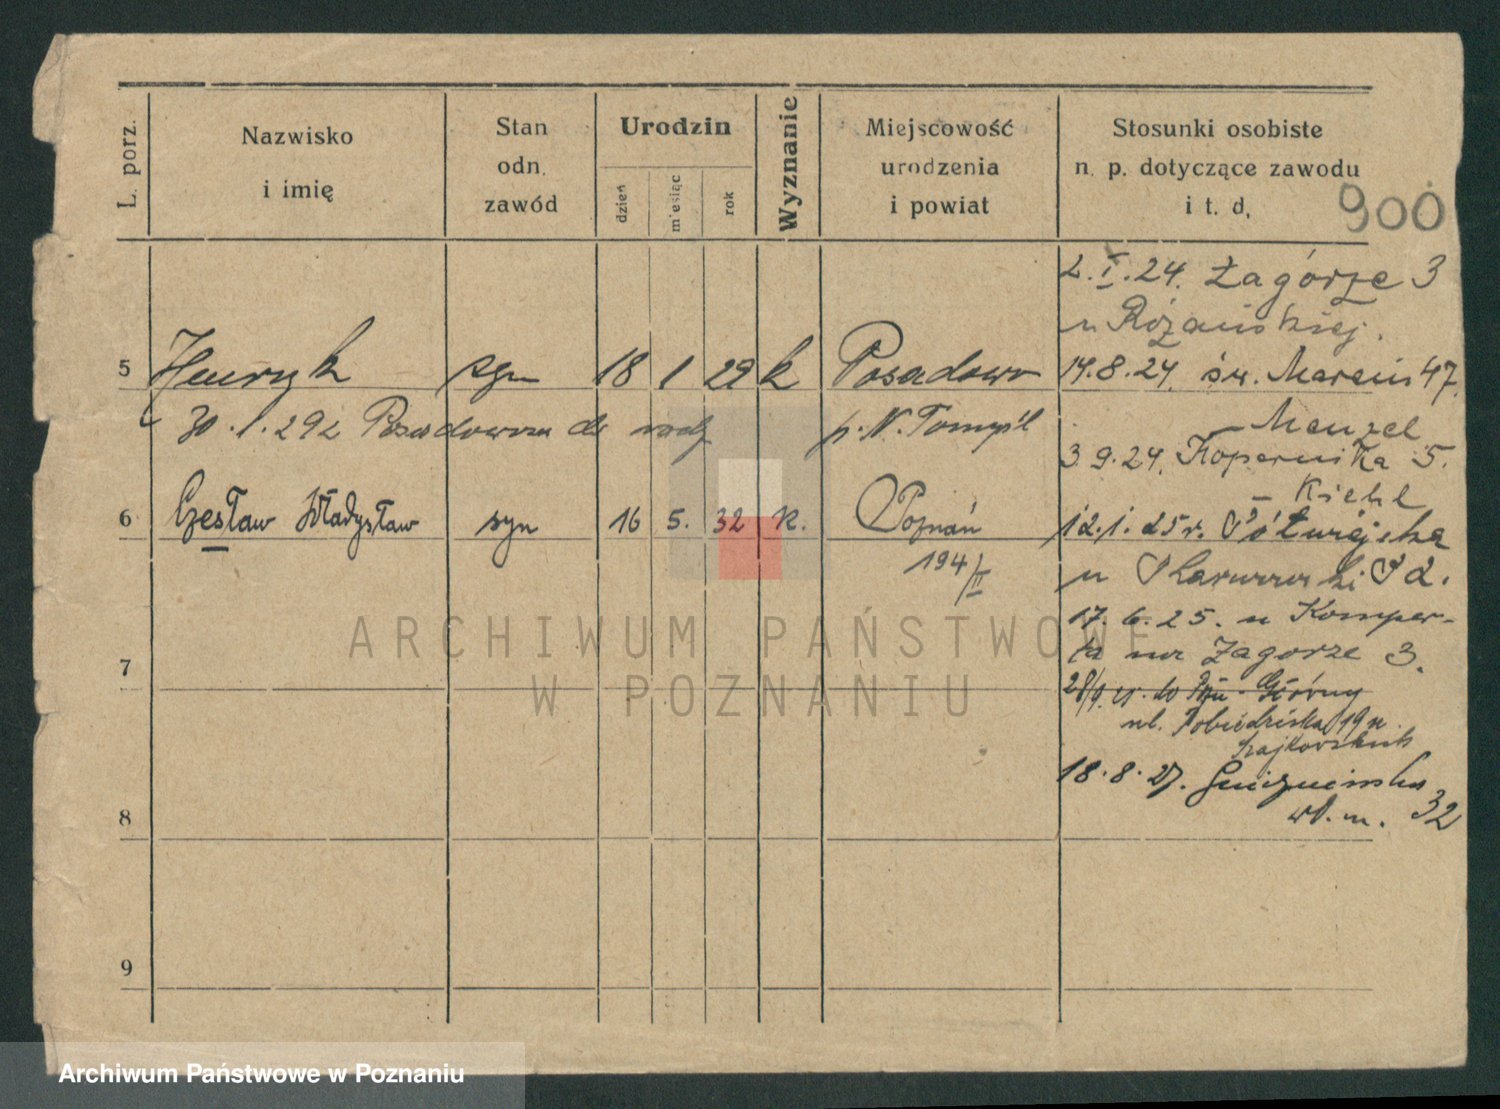 L. porz.
Nazwisko
i imię
Stan
odn.
zawód
Urodzin
dzień
miesiąc
rok
Wyznanie
Miejscowość
urodzenia
i powiat
Stosunki osobiste
n. p. dotyczące zawodu
i t. d.
900
5 Henryk syn 18 1 29 k Posadowo
30.1.292 do
p. N. Tomyśl
6 Czesław Władysław syn 16 5. 32 k. Poznań
194/II
7
8
9
2.I.24. Zagórze 3
u Różańskiej.
14.8.24. św. Marcin 47.
– Menzel
3.9.24. Kopernika 5.
– Kiehl
12.1.25r. Półwiejska
u
17.6.25. u Komper-
ta na Zagorze 3.
28/9. do Górny
ul. Pobiedziska 19 u
18.8.27. Gnieźnieńska
wł. m. 32
ARCHIWUM PAŃSTWOWE
W POZNANIU
Archiwum Państwowe w Poznaniu